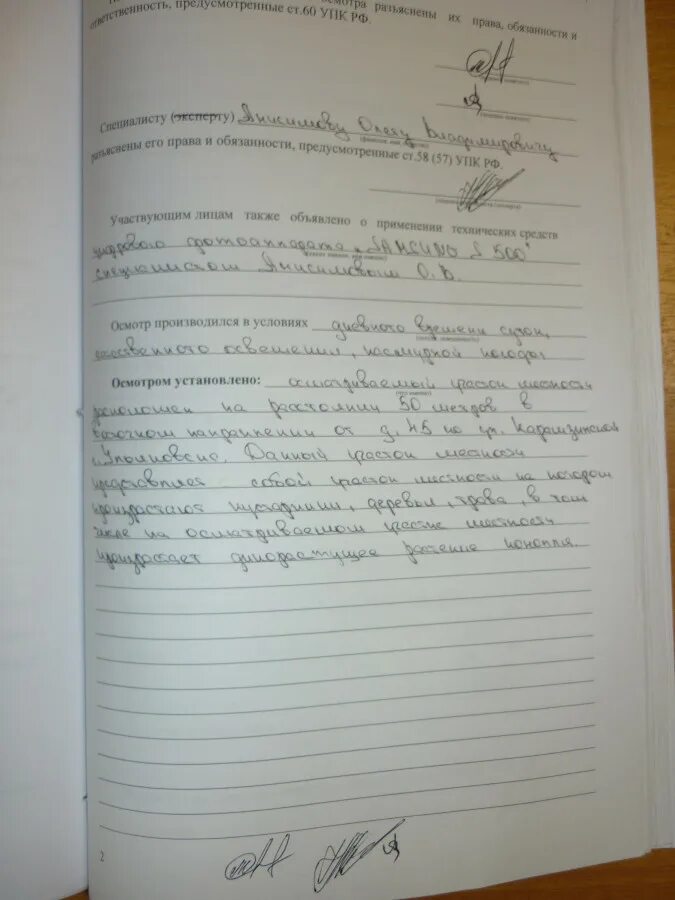 осмотра разъяснены их права, обязанности и
ответственность, предусмотренные ст.60 УПК РФ.
Специалисту (эксперту) Анисимову Олегу Владимировичу
(фамилия, имя, отчество)
разъяснены его права и обязанности, предусмотренные ст.58 (57) УПК РФ.
Участвующим лицам также объявлено о применении технических средств
цифрового фотоаппарата „SAMSUNG S 500"
специалистом Анисимовым О. В.
Осмотр производился в условиях дневного времени суток,
естественного освещения, пасмурной погоды
Осмотром установлено: осматриваемый участок местности
расположен на расстоянии 50 метров в
восточном направлении от д. 45 по ул. Карамзинской
г. Ульяновска. Данный участок местности
представляет собой участок местности на котором
произрастают кустарники, деревья, трава, в том
числе на осматриваемом участке местности
произрастает дикорастущее растение конопля.
2